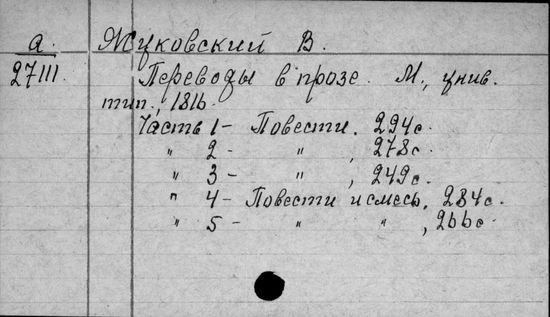 А. Жуковский В.
27111. Переводы в прозе. М., унив.
тип., 1816.
Часть 1 - Повести. 294с.
" 2 - " , 278с.
" 3 - " , 249с.
" 4 - Повести и смесь, 284с.
" 5 - " " , 266с.